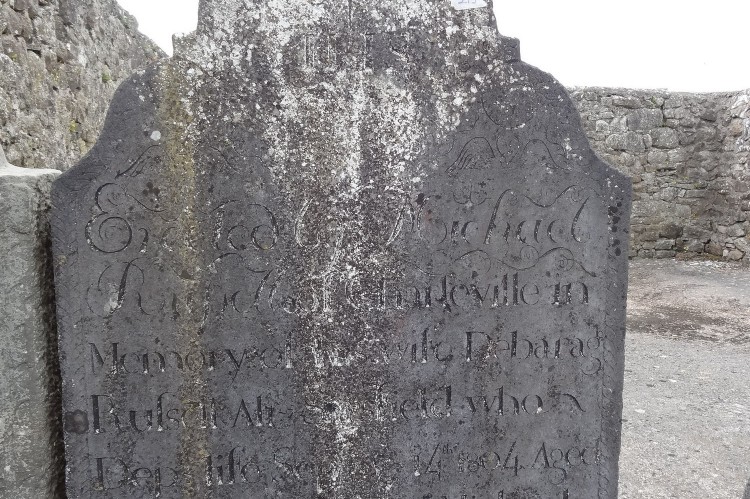 IHS
Erected by Michael
Rusſell of Charleville in
Memory of his wife Debarag
Rusſell Alt field who
Dep.ᵗ life Sep 14ᵗʰ 1804 Aged